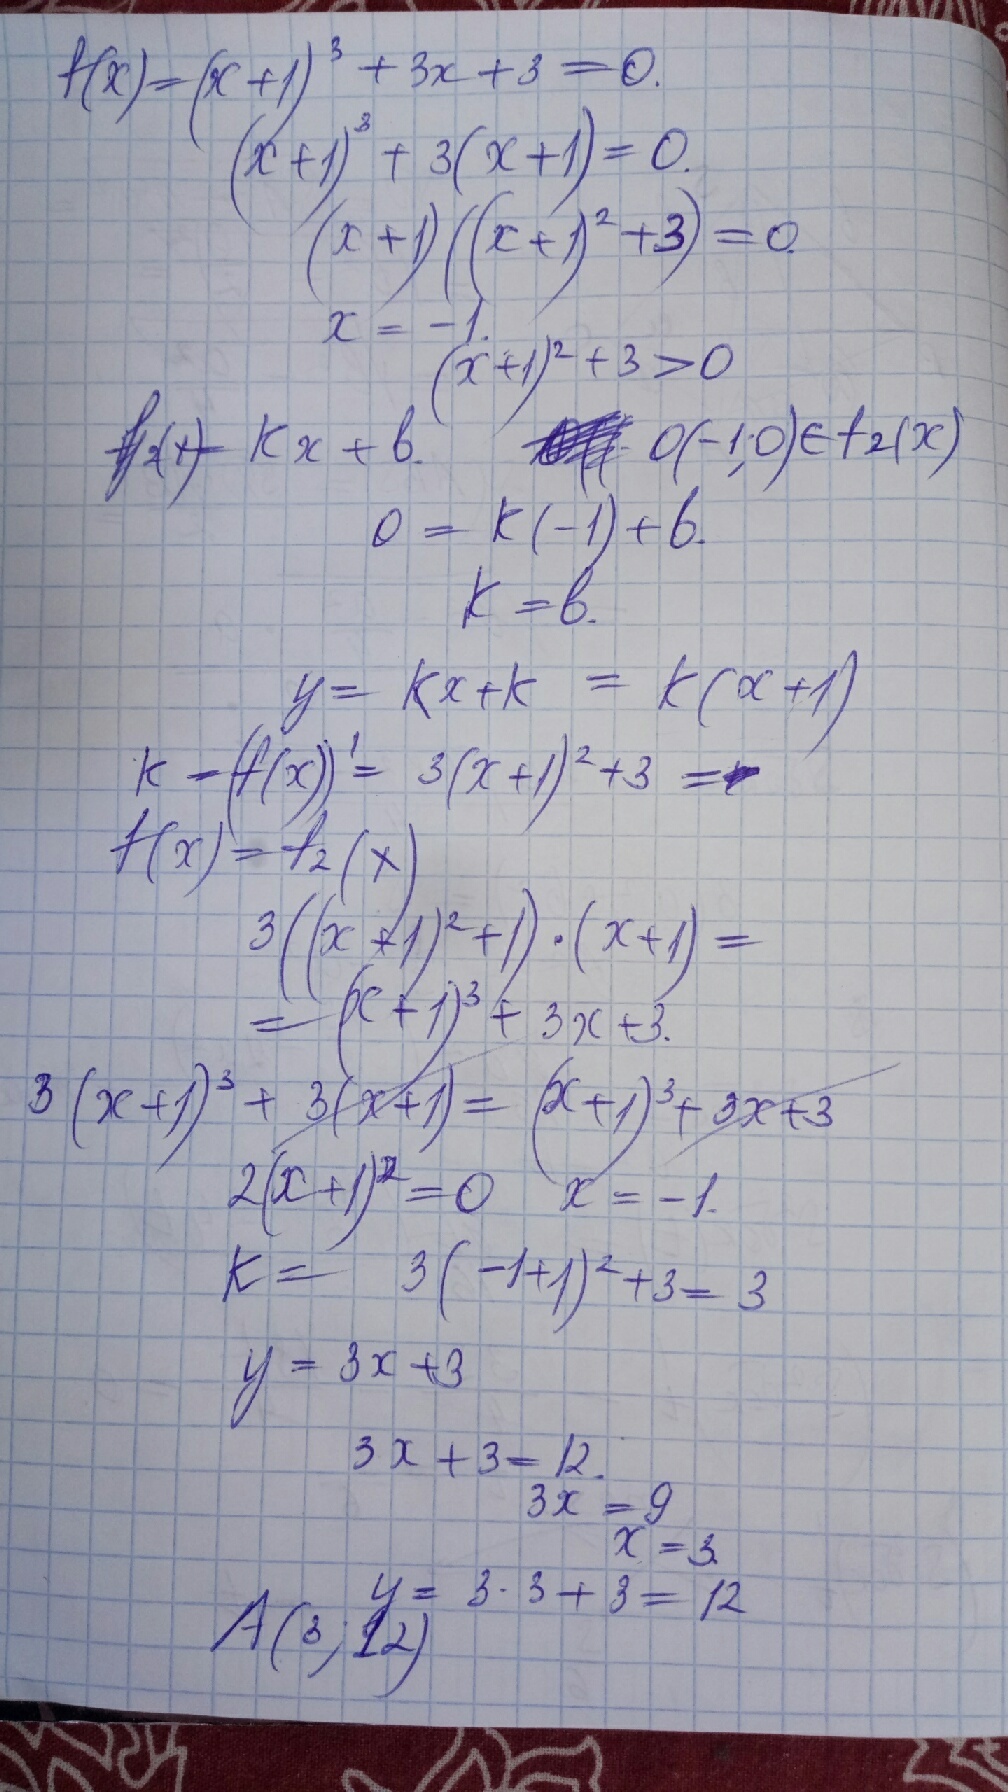 f(x) = (x+1)³ + 3x + 3 = 0.
(x+1)³ + 3(x+1) = 0.
(x+1)((x+1)² + 3) = 0.
x = -1.
(x+1)² + 3 > 0
f₂(x) = kx + b. 0(-1;0) ∈ f₂(x)
0 = k(-1) + b.
k = b.
y = kx + k = k(x+1)
k = (f(x))' = 3(x+1)² + 3 =
f(x) = f₂(x)
3((x+1)² + 1)·(x+1) =
= (x+1)³ + 3x + 3.
3(x+1)³ + 3(x+1) = (x+1)³ + 3x + 3
2(x+1)² = 0 x = -1.
k = 3(-1+1)² + 3 = 3
y = 3x + 3
3x + 3 = 12.
3x = 9
x = 3.
y = 3·3 + 3 = 12
A(3; 12)